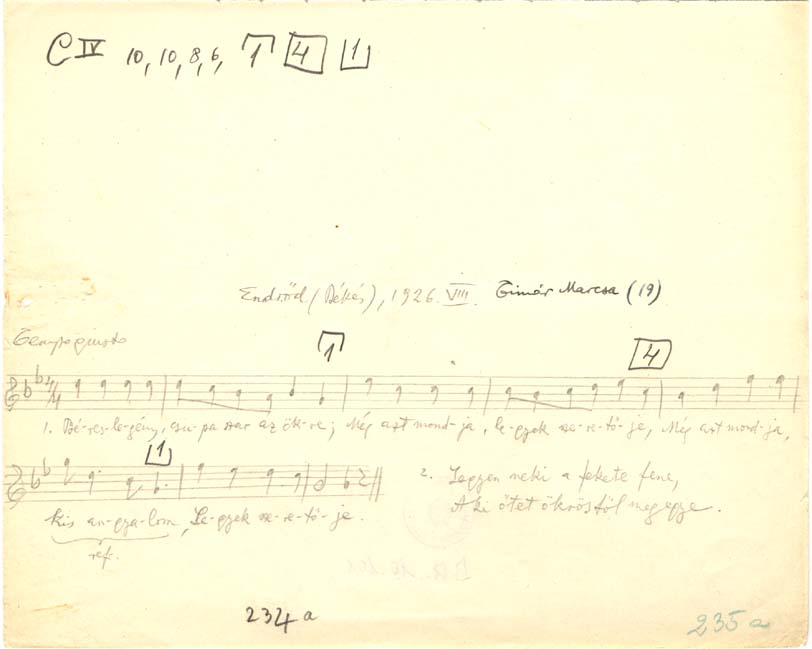 C IV 10, 10, 8, 6, 1 4 1
Endrőd (Békés), 1926. VIII. Tímár Marcsa (19)
Tempo giusto
1 4
1. Bé-res-le-gény, csu-pa szar az ök-re; Még azt mond-ja, le-gyek sze-re-tő-je, Még azt mond-ja,
1
kis an-gya-lom, Le-gyek sze-re-tő-je.
ref.
2. Legyen neki a fekete fene,
Aki ötet ökröstöl megegye.
234 a
235 a